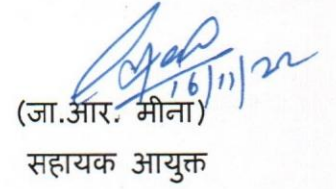 16/11/22
(जा.आर. मीना)
सहायक आयुक्त